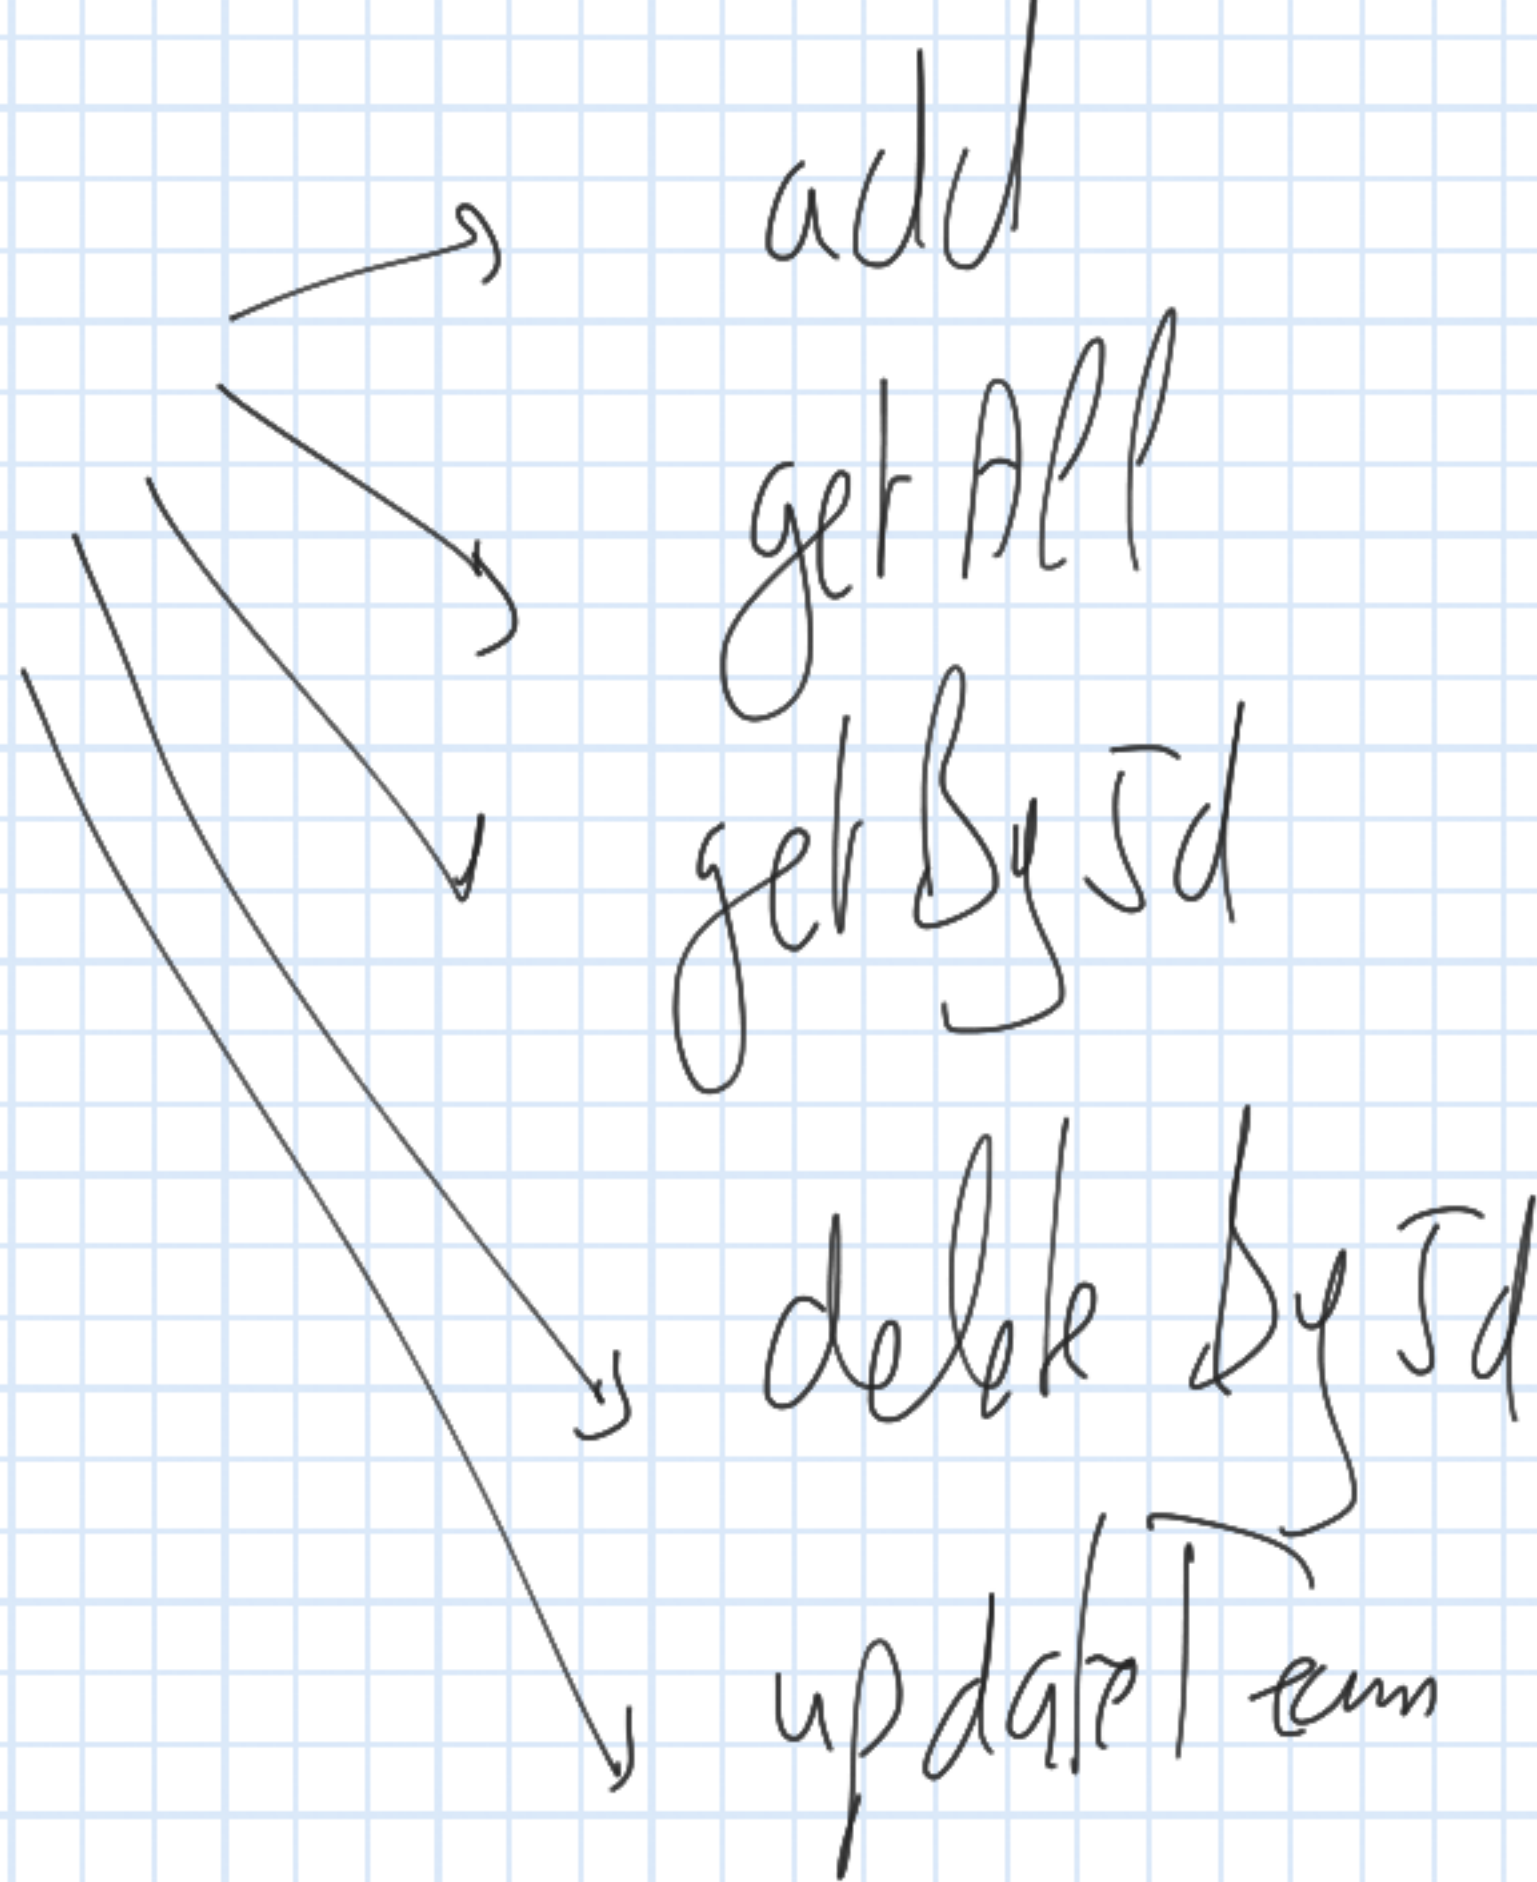 add
getAll
getById
deleteById
updateTeam